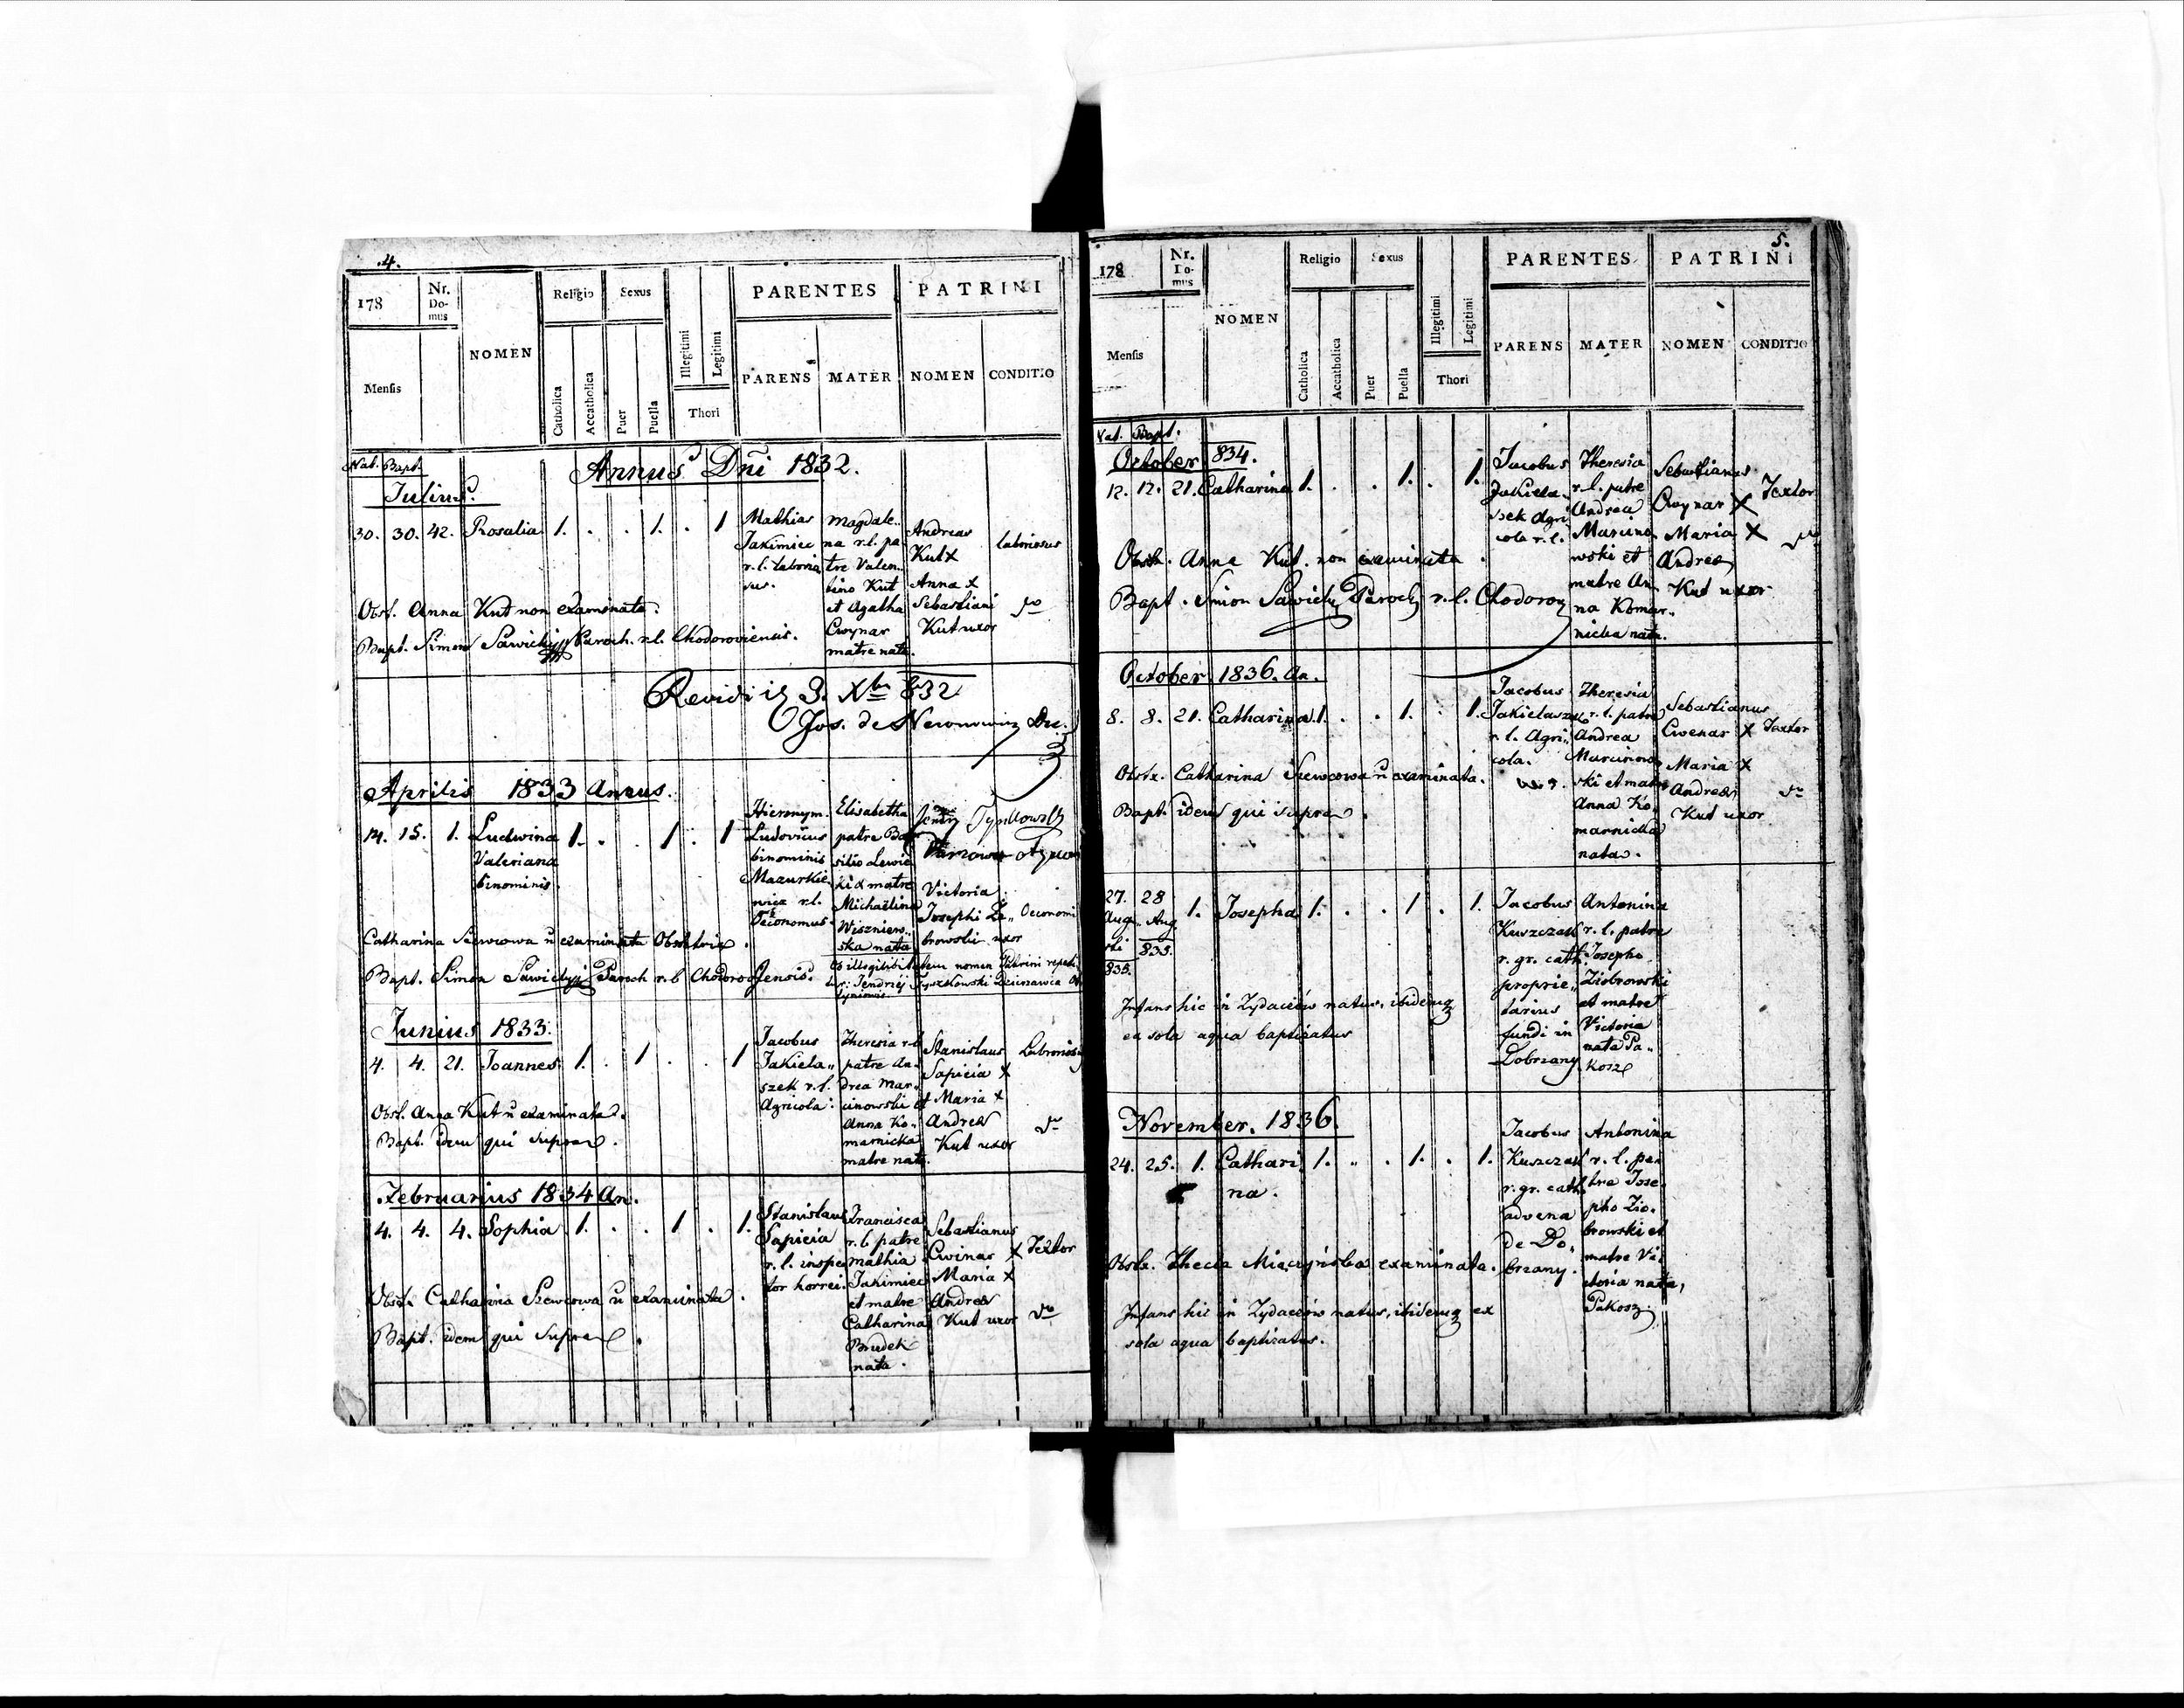 .4.
178
Nr. Do- mus
NOMEN
Religio
Sexus
Illegitimi
Legitimi
PARENTES
PATRINI
Mensis
Catholica
Accatholica
Puer
Puella
Thori
PARENS
MATER
NOMEN
CONDITIO
Nat. Bapt.
Annus Dni 1832.
Julius.
30. 30. 42. Rosalia 1. . . 1. . 1
Mathias
Jakimiec
r. l. laborio
sus.
Magdale..
na r. l. pa
tre Valen..
tino Kut
et Agatha
Cwynar
matre nata.
Andreas
Kut x
Anna x
Sebastiani
Kut uxor
laboriosus
do
Obst. Anna Kut non examinata.
Bapt. Simon Sawicky Paroch. r.l. Chodoroviensis.
Revidi 3. Xbr 832
Jos. de
Aprilis 1833 Annus.
14. 15. 1. Ludwina 1. . . 1 . 1
Valeriana
binominis
Hieronym.
Ludovicus
binominis
Mazurkie
wicz r.l.
Oeconomus.
Elisabetha
patre Ba
silio Lewic
ki & matre
Michaelina
Wiszniew..
ska nata
Victoria
Josephi Zi..
browski uxor
Oeconomi
Catharina Szewcowa n examinata Obstetrix.
Bapt. Simon Sawicky Paroch r. l. Chodoroviensis.
Ob illegibilitatem nomen Patrini repeti
tur: Jendrzej
Junius 1833.
4. 4. 21. Joannes 1. . 1 . . 1
Jacobus
Jakiela..
szek r. l.
Agricola.
Theresia r. l.
patre An
drea Mar..
cinowski et
Anna Ko..
marnicka
matre nata.
Stanislaus
Sapicia x
Maria x
Andreæ
Kut uxor
do
Obst. Anna Kut n examinata.
Bapt. idem qui supra.
Februarius 1834 An.
4. 4. 4. Sophia 1. . . 1 . 1.
Stanislaus
Sapicia
r. l. inspec
tor horrei.
Francisca
r. l. patre
Mathia
Jakimiec
et matre
Catharina
Brudek
nata.
Sebastianus
Cwinar x
Maria x
Andreæ
Kut uxor
Textor
do
Obst. Catharina Szewcowa n examinata.
Bapt. idem qui supra.
5.
178
Nr. Do- mus
NOMEN
Religio
Sexus
Illegitimi
Legitimi
PARENTES
PATRINI
Mensis
Catholica
Accatholica
Puer
Puella
Thori
PARENS
MATER
NOMEN
CONDITIO
Nat. Bapt.
October 834.
12. 12. 21. Catharina 1. . . 1. . 1.
Jacobus
Jakiela
szek Agri
cola r. l.
Theresia
r. l. patre
Andrea
Marcino
wski et
matre An
na Komar..
nicka nata.
Sebastianus
Cwynar X
Maria X
Andreæ
Kut uxor
Textor
do
Obst. Anna Kut non examinata.
Bapt. Simon Sawicky Paroch r. l. Chodorov
October 1836. An.
8. 8. 21. Catharina 1. . . 1. . 1.
Jacobus
Jakielaszek
r. l. Agri..
cola.
Theresia
r. l. patre
Andrea
Marcinow
ski et matre
Anna Ko..
marnicka
nata.
Sebastianus
Cwenar x
Maria x
Andreæ
Kut uxor
Textor
do
Obstx. Catharina Szewcowa n examinata.
Bapt. idem qui supra.
27. 28 1. Josepha 1. . . 1 . 1.
Aug Aug
835. 835.
Jacobus
Kuszczak
r. gr. cath.
proprie..
tarius
fundi in
Dobrzany
Antonina
r. l. patre
Josepho
Ziobrowski
et matre
Victoria
nata Pa..
kosz
Infans hic in Zydaczów natus, ibidemq
ex sola aqua baptizatus
November. 1836.
24. 25. 1. Cathari 1. . . 1. . 1.
na.
Jacobus
Kuszczak
r. gr. cath.
advena
de Do..
brzany.
Antonina
r. l. pa
tre Jose
pho Zio..
browski et
matre Vi..
ctoria nata,
Pakosz.
Obstx. Thecla examinata.
Infans hic in Zydaczów natus, ibidemq ex
sola aqua baptizatus.